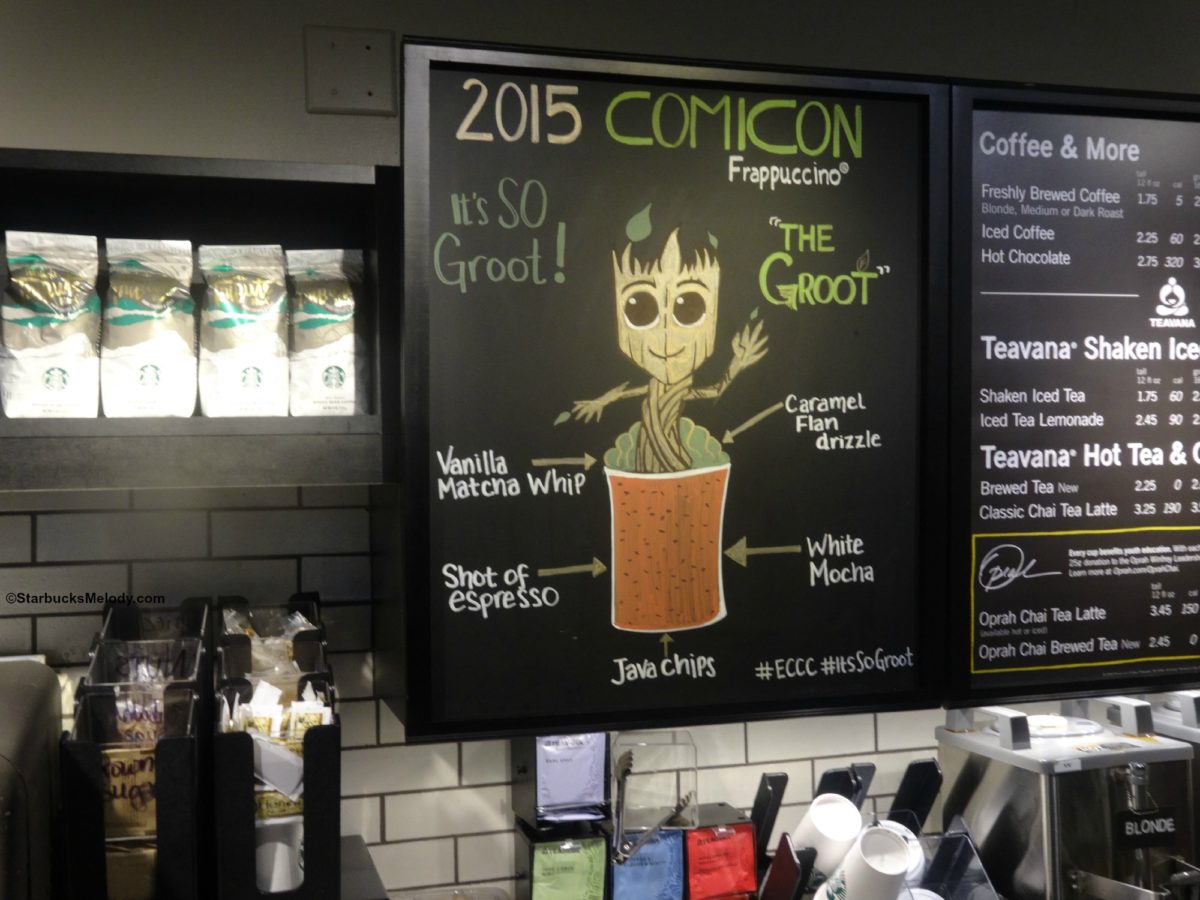 2015 COMICON
Frappuccino®
It's SO
Groot!
"THE
GROOT"
Caramel
Flan
drizzle
Vanilla
Matcha Whip
Shot of
espresso
White
Mocha
Java chips
#ECCC #ItsSoGroot
Coffee & More
tall
12 fl oz cal
Freshly Brewed Coffee 1.75 5
Blonde, Medium or Dark Roast
Iced Coffee 2.25 60
Hot Chocolate 2.75 320
TEAVANA
Teavana® Shaken Ice
tall
12 fl oz cal
Shaken Iced Tea 1.75 60
Iced Tea Lemonade 2.45 90
Teavana® Hot Tea &
Brewed Tea New 2.25 0
Classic Chai Tea Latte 3.25 190
Oprah
Every cup benefits youth education. With
25¢ donation to the Oprah Winfrey
Learn more at Oprah.com/OprahChai
tall
12 fl oz cal
Oprah Chai Tea Latte 3.45 150
(available hot or iced)
Oprah Chai Brewed Tea New 2.45 0
©StarbucksMelody.com
BLONDE